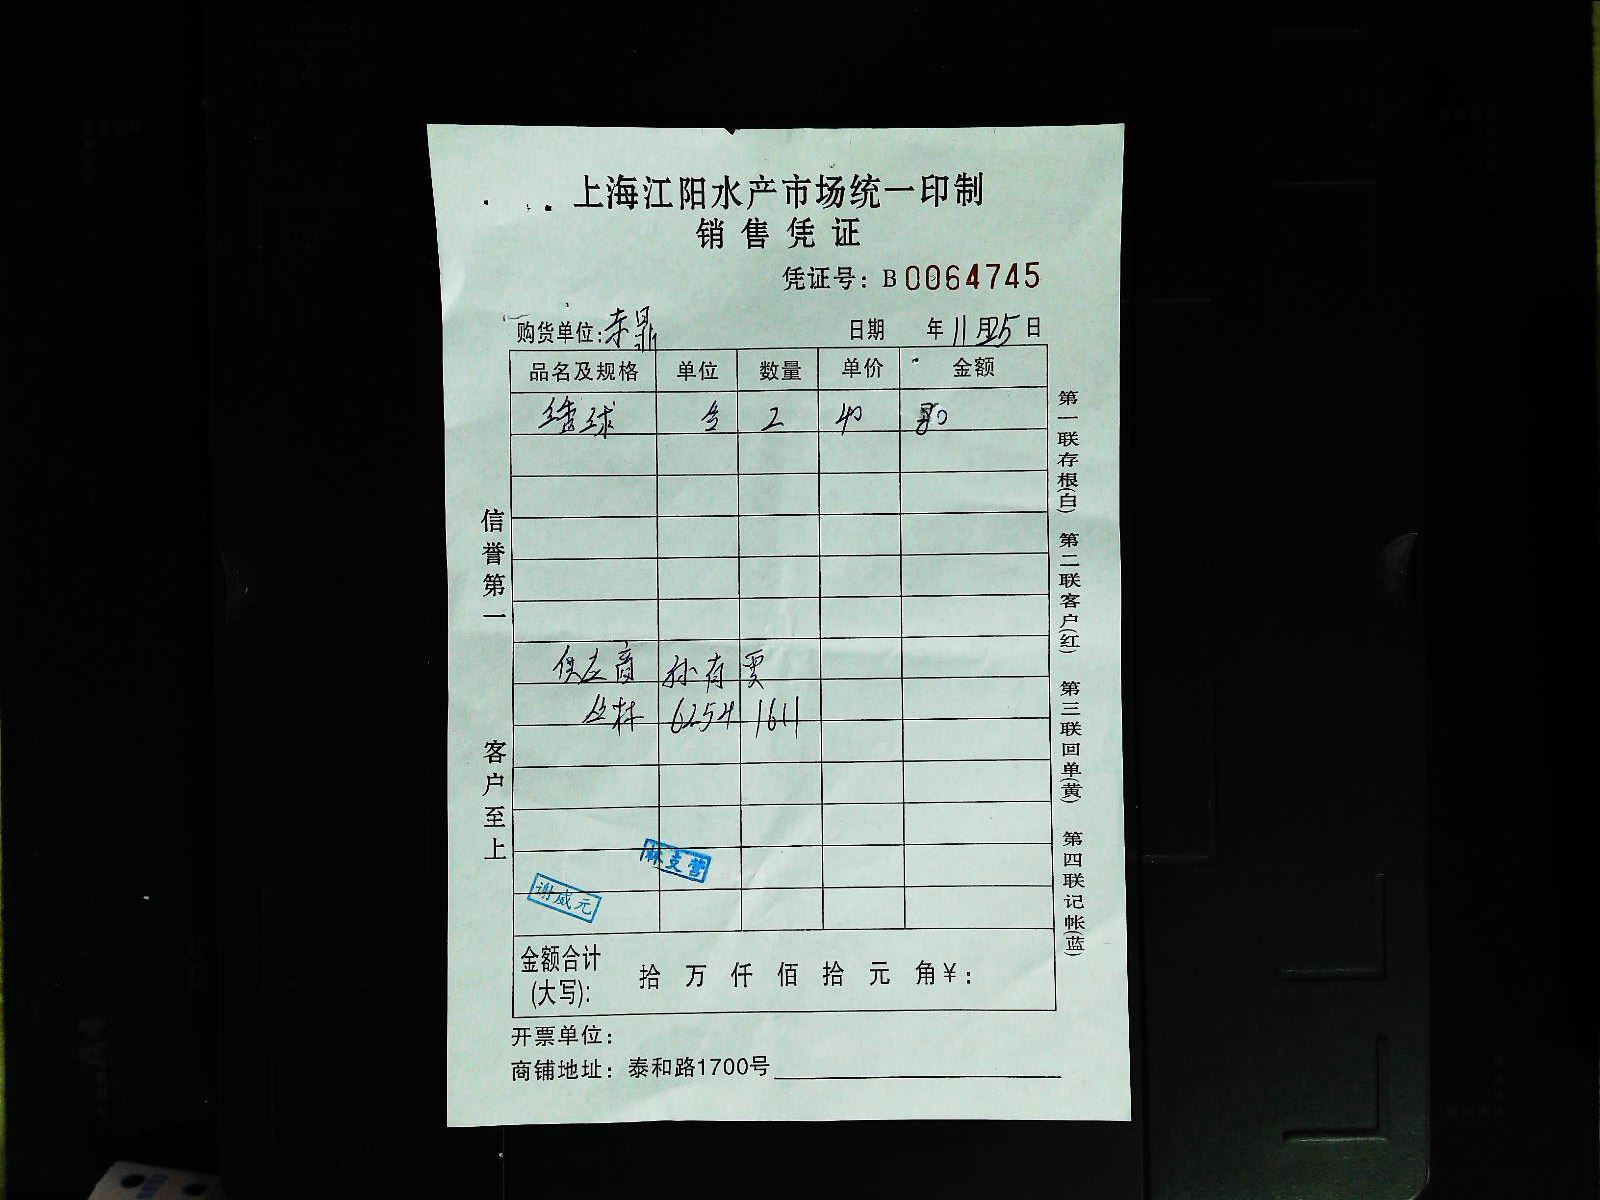 上海江阳水产市场统一印制
销售凭证
凭证号：B 0064745
购货单位： 日期 年11月25日
品名及规格 单位 数量 单价 金额
球 2 40 80
供应商 孙有贾
丛林 6254 1611
信誉第一 客户至上
第一联存根(白) 第二联客户(红) 第三联回单(黄) 第四联记帐(蓝)
麻支营
谢威元
金额合计(大写): 拾 万 仟 佰 拾 元 角 ¥：
开票单位：
商铺地址：泰和路1700号